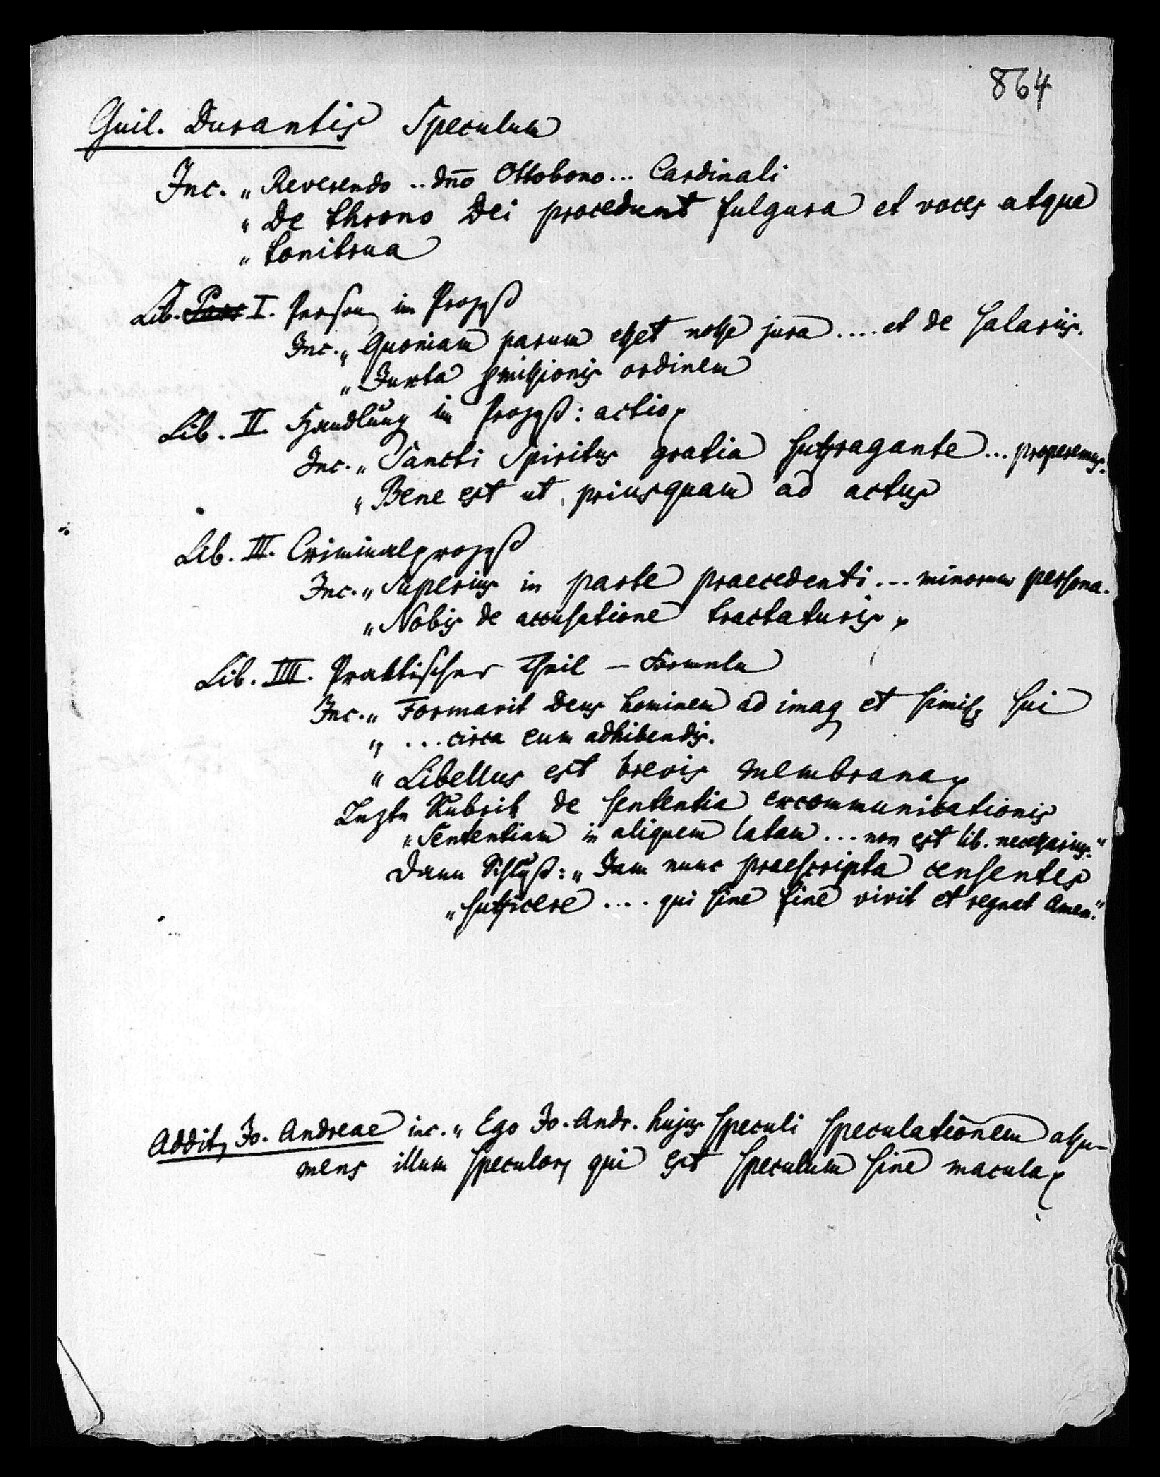 864
Guil. Durantis Speculum
Inc. „Reverendo .. dn̄o Ottobono... Cardinali
„De throno Dei procedunt fulgura et voces atque
„tonitrua
Lib. Pars I. Person im Prozeß
Inc. „Quoniam parum esset nosse jura .... et de salariis.
„Juxta ordinem
Lib. II Handlung im Prozeß: actio
Inc. „Sancti Spiritus gratia suffragante ... properemus.
„Bene est ut priusquam ad actus
Lib. III. Criminalprozeß
Inc. „Superius in parte praecedenti ... minorum persona.
„Nobis de accusatione tractaturis
Lib. IIII. Praktischer Theil – Formeln
Inc. „Formavit Deus hominem ad imag et simil sui
„ ... circa eum adhibendis.
„Libellus est brevis membrana
Letzte Rubrik de sententia excommunicationis
„Sententiam in aliquem latam ... non est lib. necessarius.“
Dann Schluß: „Jam nunc praescripta censentes
„sufficere .... qui sine fine vivit et regnat Amen.“
Addit. Jo. Andreae inc. „Ego Jo. Andr. hujus speculi speculationem assu-
mens illum speculor, qui est speculum sine macula